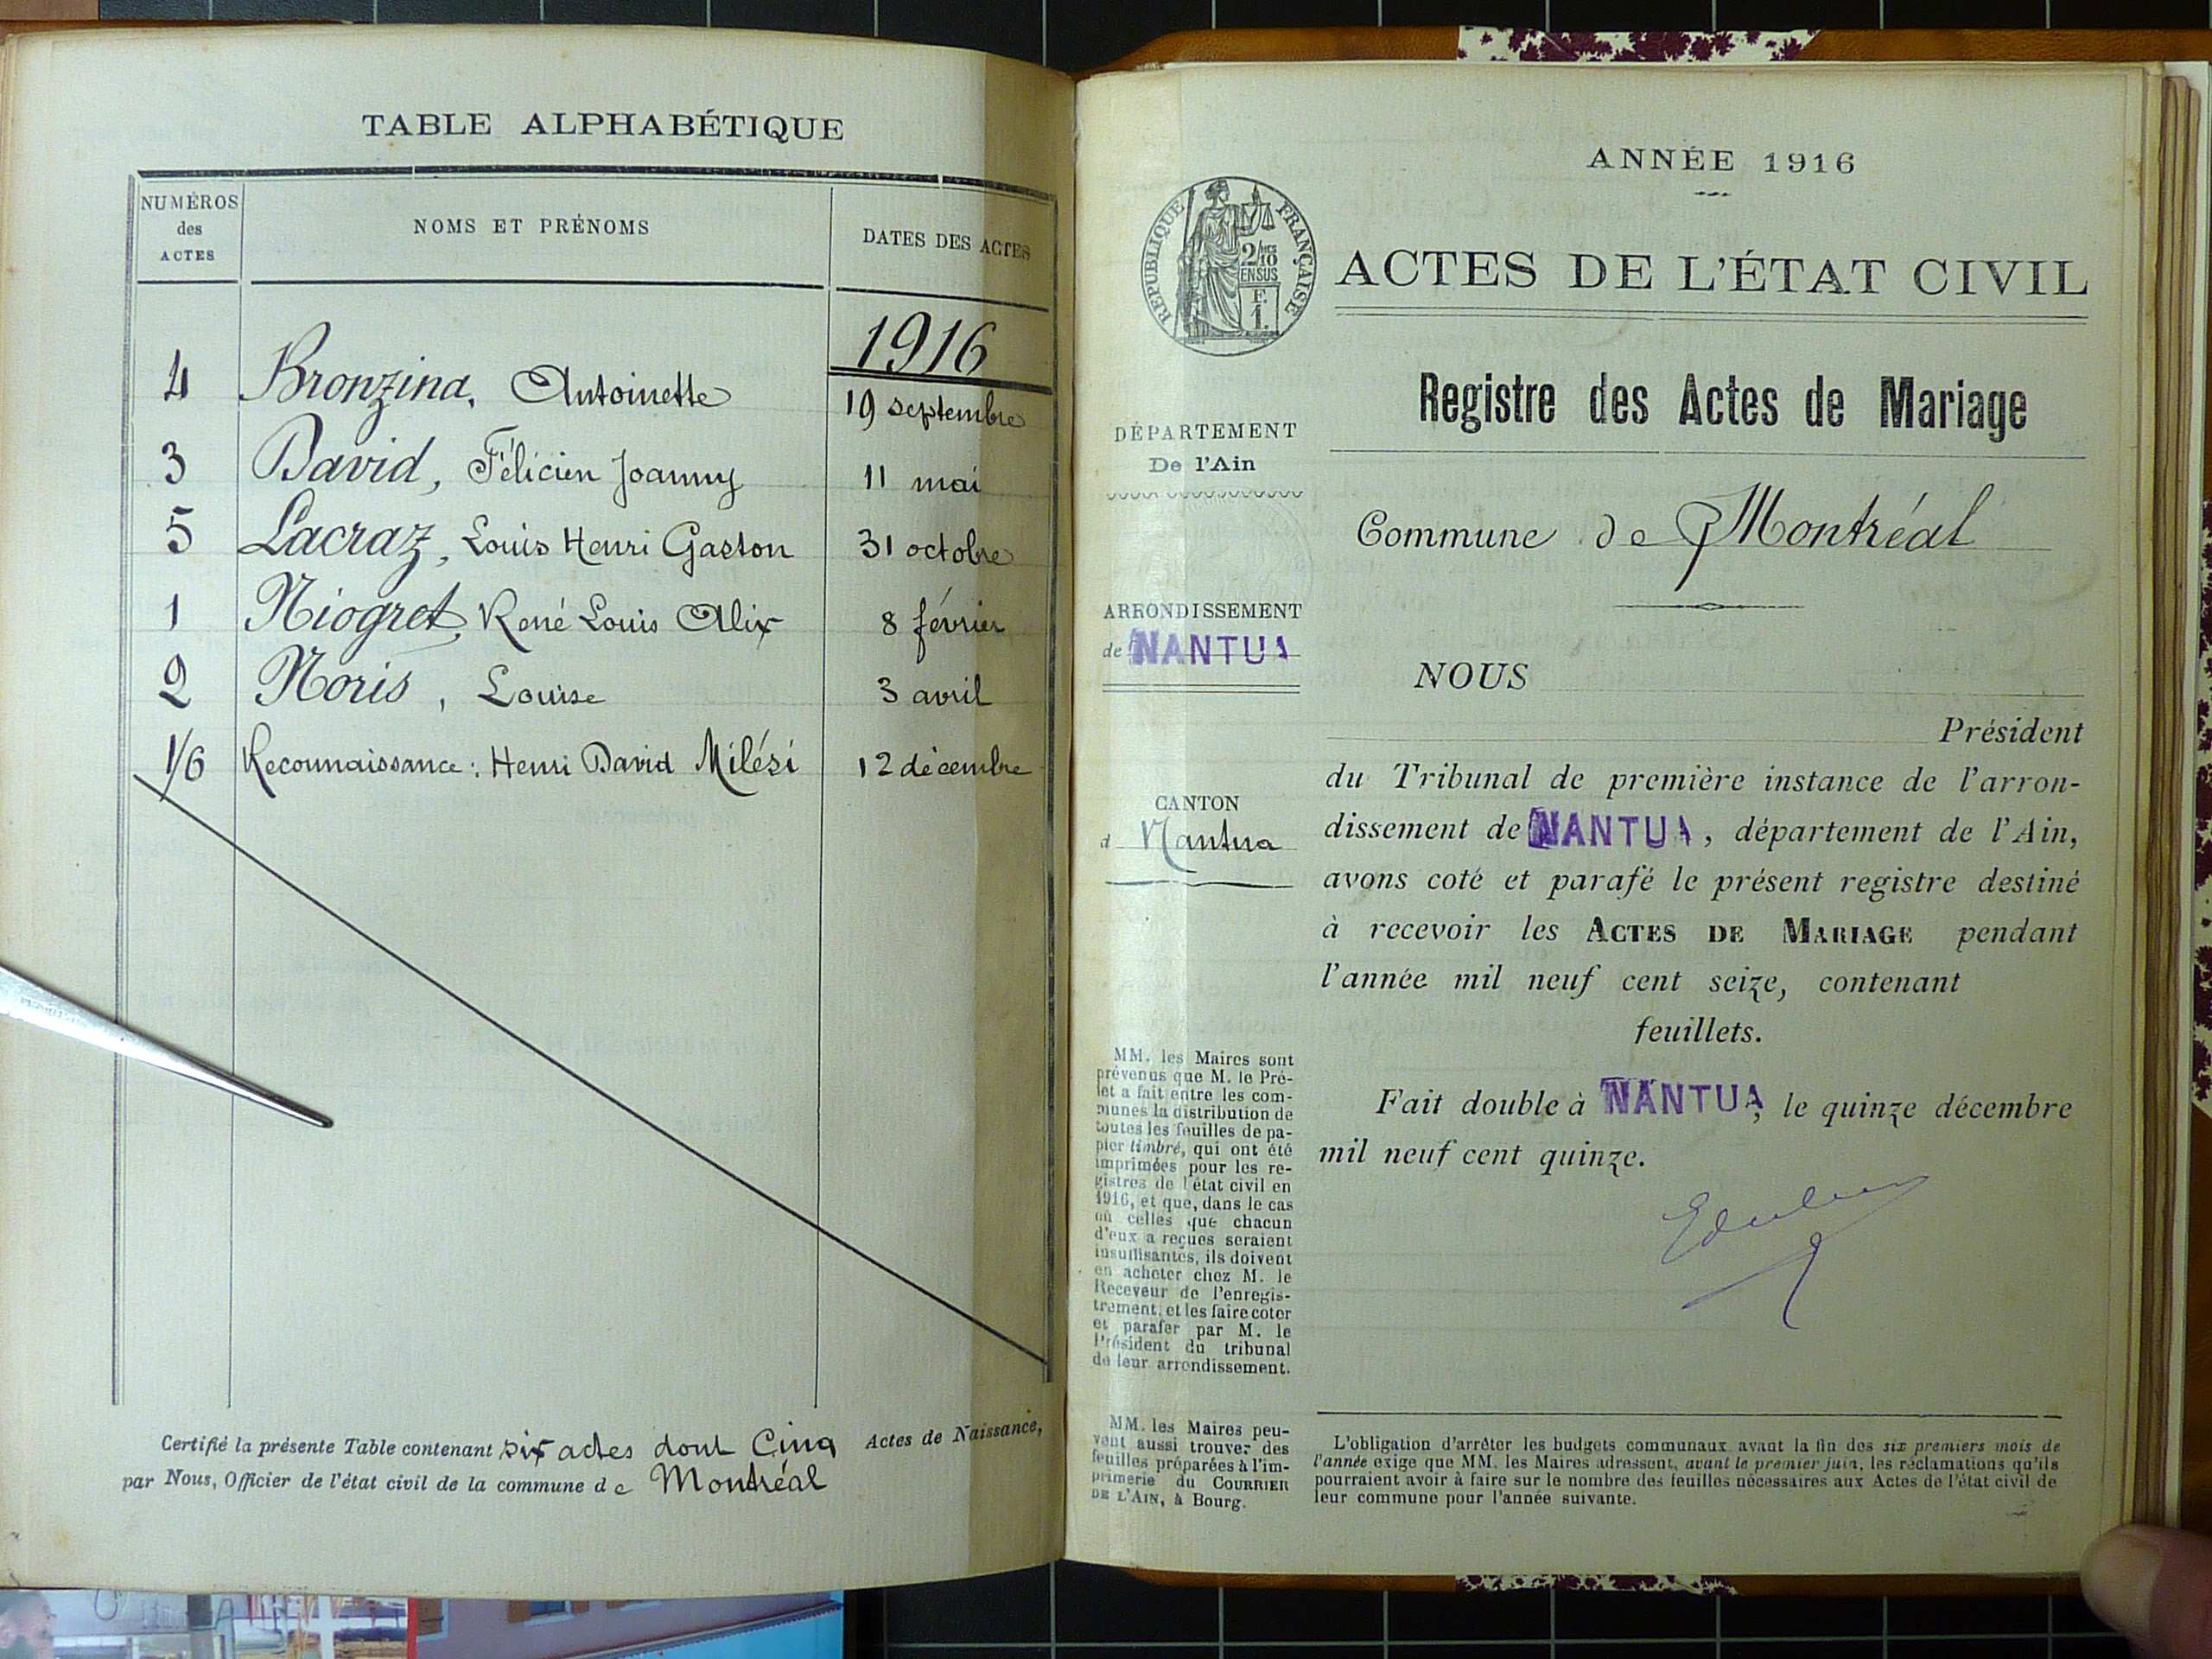 TABLE ALPHABÉTIQUE
NUMÉROS des ACTES
NOMS ET PRÉNOMS
DATES DES ACTES
1916
4 Bronzina, Antoinette 19 septembre
3 David, Félicien Joanny 11 mai
5 Lacraz, Louis Henri Gaston 31 octobre
1 Niogret, René Louis Alix 8 février
2 Noris, Louise 3 avril
1/6 Reconnaissance : Henri David Milési 12 décembre
Certifié la présente Table contenant six actes dont Cinq Actes de Naissance,
par Nous, Officier de l'état civil de la commune de Montréal
ANNÉE 1916
RÉPUBLIQUE FRANÇAISE
2/10
EN SUS
F.
1.
ACTES DE L'ÉTAT CIVIL
Registre des Actes de Mariage
DÉPARTEMENT
De l'Ain
Commune de Montréal
ARRONDISSEMENT
de NANTUA
CANTON
d Nantua
NOUS
Président
du Tribunal de première instance de l'arron-
dissement de NANTUA, département de l'Ain,
avons coté et parafé le présent registre destiné
à recevoir les ACTES DE MARIAGE pendant
l'année mil neuf cent seize, contenant
feuillets.
Fait double à NANTUA, le quinze décembre
mil neuf cent quinze.
MM. les Maires sont
prévenus que M. le Pré-
fet a fait entre les com-
munes la distribution de
toutes les feuilles de pa-
pier timbré, qui ont été
imprimées pour les re-
gistres de l'état civil en
1916, et que, dans le cas
où celles que chacun
d'eux a reçues seraient
insuffisantes, ils doivent
en acheter chez M. le
Receveur de l'enregis-
trement, et les faire coter
et parafer par M. le
Président du tribunal
de leur arrondissement.
MM. les Maires peu-
vent aussi trouver des
feuilles préparées à l'im-
primerie du COURRIER
DE L'AIN, à Bourg.
L'obligation d'arrêter les budgets communaux avant la fin des six premiers mois de
l'année exige que MM. les Maires adressent, avant le premier juin, les réclamations qu'ils
pourraient avoir à faire sur le nombre des feuilles nécessaires aux Actes de l'état civil de
leur commune pour l'année suivante.